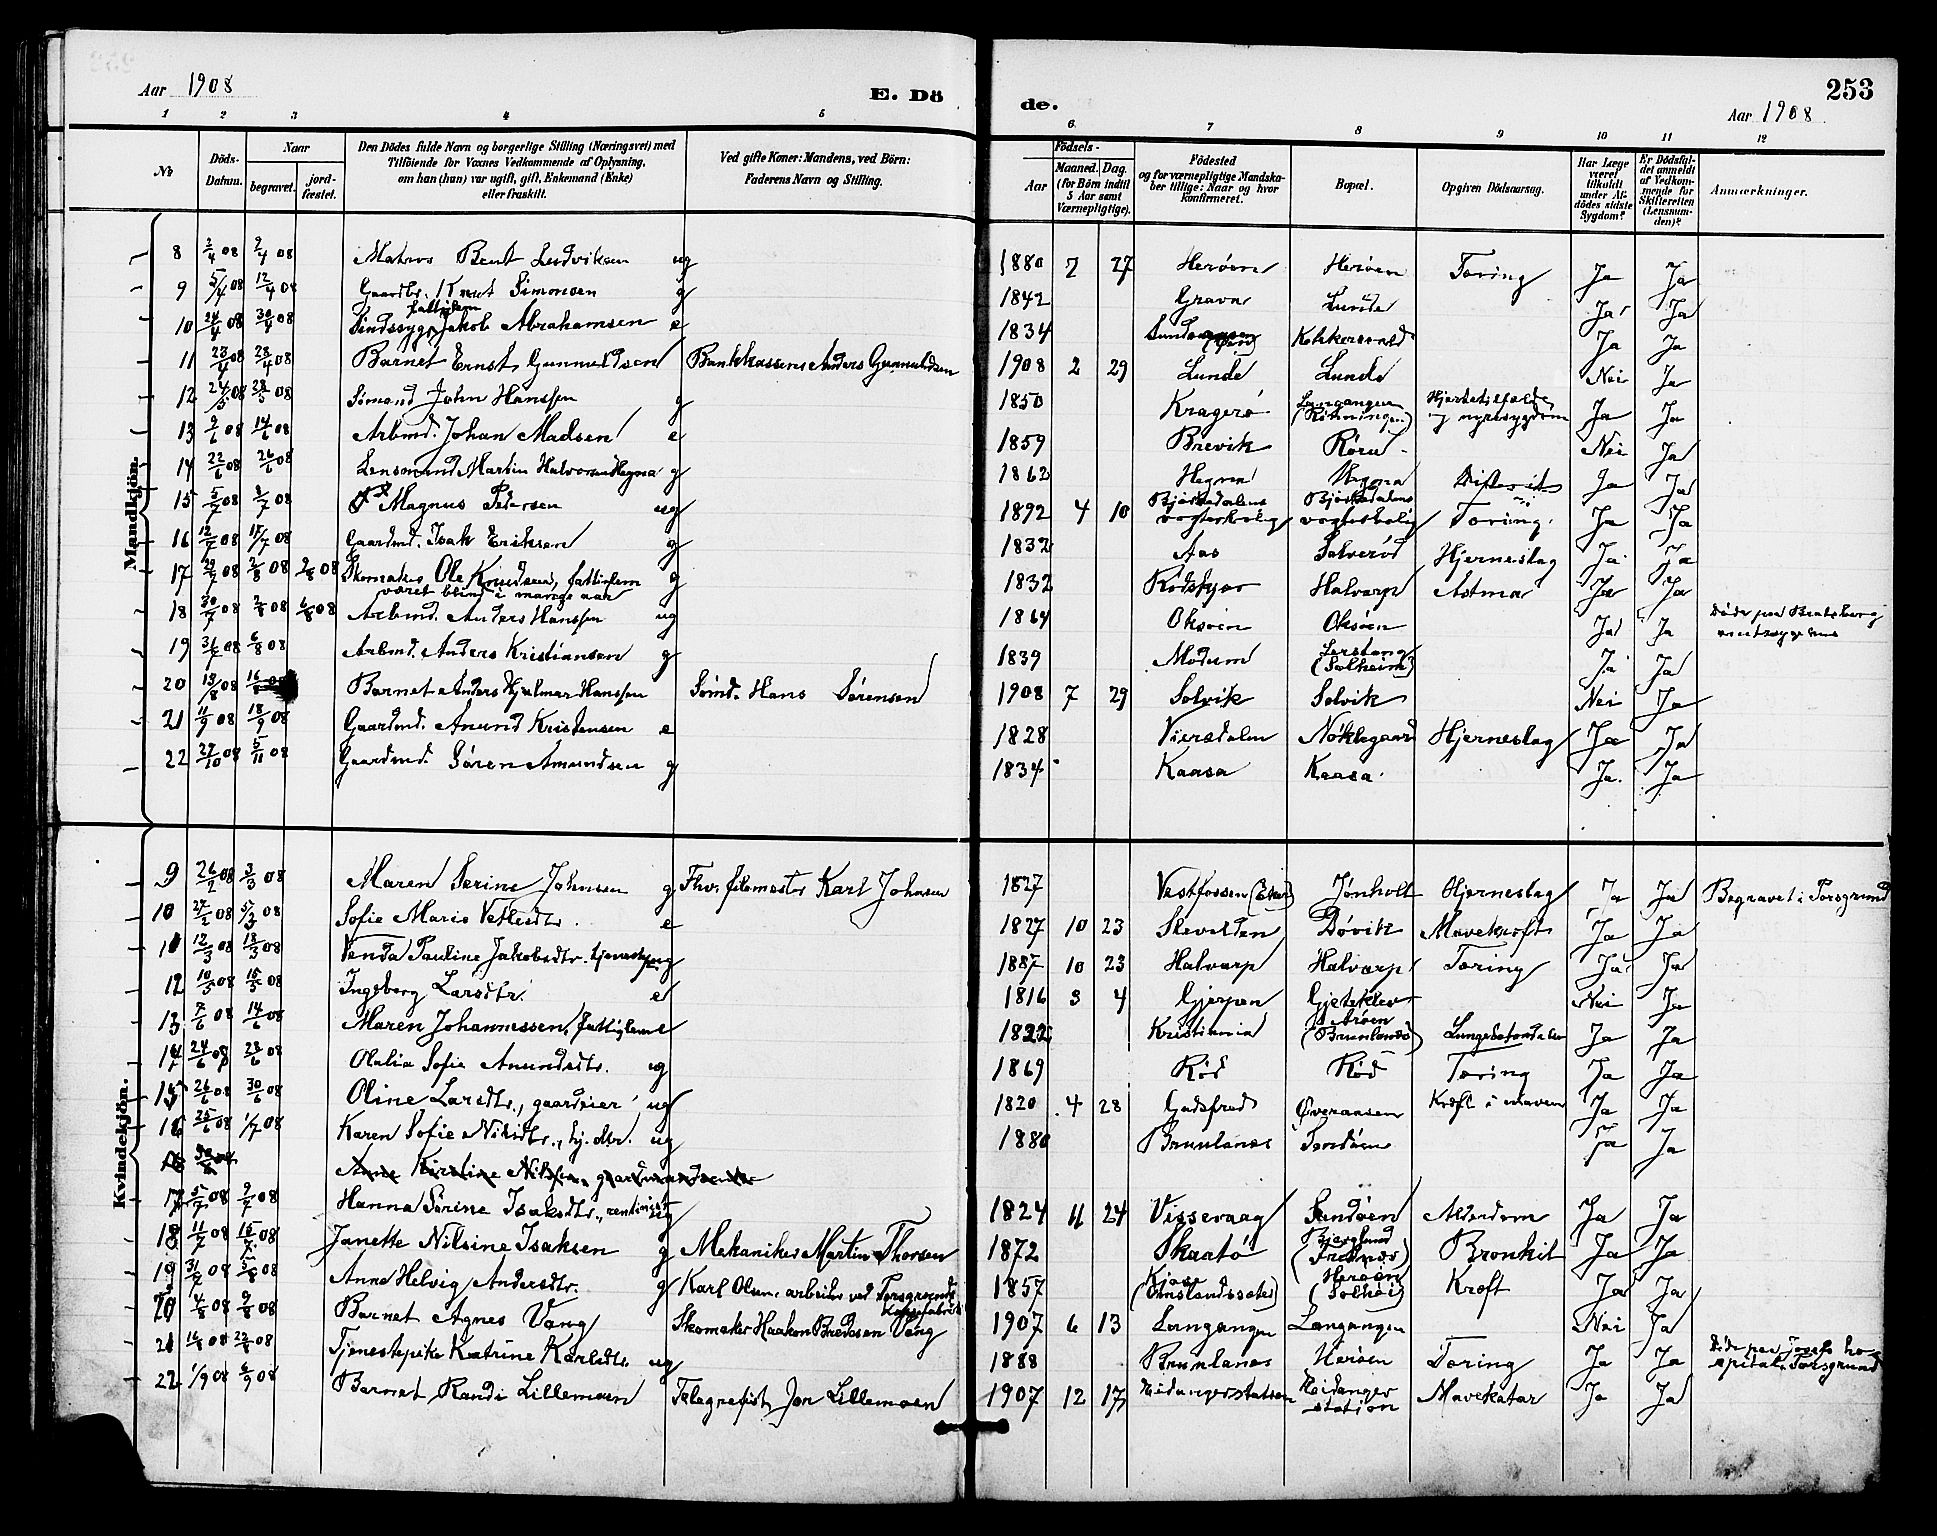 Aar 1908 E. Dö de. 253
Aar 1908.
1 2 3 4 5 6 7 8 9 10 11 12
No
Döds-
Datum.
Naar
begravet.
jord-
fæstet.
Den Dödes fulde Navn og borgerlige Stilling (Næringsvei) med
Tilföiende for Voxnes Vedkommende af Oplysning,
om han (hun) var ugift, gift, Enkemand (Enke)
eller fraskilt.
Ved gifte Koner: Mandens, ved Börn:
Faderens Navn og Stilling.
Födsels-
Aar
Maaned. Dag
(for Börn indtil
5 Aar samt
Værnepligtige).
Födested
og for værnepligtige Mandska-
ber tillige: Naar og hvor
konfirmeret.
Bopæl.
Opgiven Dödsaarsag.
Har Læge
været
tilkaldt
under Af-
dödes sidste
Sygdom?
Er Dödsfal-
det anmeldt
af Vedkom-
mende for
Skifteretten
(Lensman-
den)?
Anmærkninger.
Mandkjön.
8 2/4 08 2/4 08 Matros Bent Ludviksen ug 1880 7 27 Herøen Herøen Tæring Ja Ja
9 5/4 08 12/4 08 Gaardbr. Knut Simonsen g 1842 Grava Lunde Ja Ja
10 24/4 08 30/4 08 Sindssyg, fattiglem Jakob Abrahamsen e 1834 Ja Ja
11 23/4 08 28/4 08 Barnet Ernst Gunnuldsen Bankkasserer Anders Gunnuldsen 1908 2 29 Lunde Lunde Nei Ja
12 24/5 08 28/5 08 Sømand John Hanssen g 1850 Kragerø Langangen Hjertetilfælde
og nyresygdom Ja Ja
13 9/6 08 14/6 08 Arbmd. Johan Madsen e 1859 Brevik Røra Nei Ja
14 22/6 08 26/6 08 Lensmand Martin Halvorsen Hegna g 1862 Hegna Hegna Ja Ja
15 5/7 08 9/7 08 Magnus Pedersen ug 1892 4 10 Bjørkedalens
vogterbolig Bjørkedalens
vogterbolig Tæring. Ja Ja
16 12/7 08 15/7 08 Gaardmd. Isak Eriksen g 1832 Aas Solverød Hjerneslag Ja Ja
17 29/7 08 2/8 08 2/8 08 Skomaker Ole Knudsen, fattiglem
været blind i mange aar g 1832 Rødskjær Halvarp Astma Ja Ja
18 30/7 08 2/8 08 6/8 08 Arbmd. Anders Hanssen ug 1864 Oksøen Oksøen Ja Ja Døde paa Bratsberg
19 31/7 08 6/8 08 Arbmd. Anders Kristiansen g 1839 Modum Lerstang
(Solheim) Ja Ja
20 13/8 08 16/8 08 Barnet Anders Hjalmar Hanssen Sømd. Hans Sørensen 1908 7 29 Solvik Solvik Nei Ja
21 11/9 08 18/9 08 Gaardmd. Anund Kristensen e 1828 Viersdalen Nøklegaard Hjerneslag Ja Ja
22 29/10 08 5/11 08 Gaardmd. Søren Amundsen g 1834 Kaasa Kaasa Ja Ja
Kvindekjön.
9 26/2 08 3/3 08 Maren Serine Johnsen g Fhv. filemester Karl Johnsen 1827 Vestfossen (Eker) Jønholt Hjerneslag Ja Ja Begravet i Porsgrund
10 27/2 08 5/3 08 Sofie Marie Vetlesdtr. e 1827 10 23 Døvik Mavekræft Ja Ja
11 12/3 08 18/3 08 Venda Pauline Jakobsdtr. ug 1887 10 23 Halvarp Halvarp Tæring Ja Ja
12 10/5 08 15/5 08 Ingeborg Larsdtr. e 1816 3 4 Gjerpen Gjeteklev Nei Ja
13 7/6 08 14/6 08 Maren Johannessen, fattiglem e 1822 Kristiania Arøen
(Brunlanæs) Lungebetændelse Ja Ja
14 24/6 08 28/6 08 Olalia Sofie Amundsdtr. ug 1869 Rød Rød Tæring Ja Ja
15 26/6 08 30/6 08 Oline Larsdtr., gaardeier ug 1820 4 28 Øveraasen Kræft i maven Ja Ja
16 25/6 08 1/7 08 Karen Sofie Nilsdtr., ug 1880 Brunlanæs Sandøen Ja Ja
Anne Kirstine Nilsen,
17 5/7 08 9/7 08 Hanna Sørine Isaksdtr., rentinist ug 1824 11 24 Vissevaag Sandøen Alderdom Ja Ja
18 11/7 08 15/7 08 Janette Nilsine Isaksen g Mekaniker Martin Thorsen 1872 Skaatø Bjerglund
(Frednæs) Bronkit Ja Ja
19 31/7 08 5/8 08 Anne Helvig Andersdtr. g Karl Olsen, arbeider ved Porsgrunds 1857 Herøen
(Solhøi) Kræft Ja Ja
20 4/8 08 9/8 08 Barnet Agnes Vang Skomaker Haakon Bredesen Vang 1907 6 13 Langangen Langangen Nei Ja
21 16/8 08 22/8 08 Tjenestepike Katrine Karlsdtr. ug 1888 Brunlanes Herøen Tæring Ja Ja Døde paa Josefs ho-
spital i Porsgrund
22 1/9 08 6/9 08 Barnet Randi Lillemoen Telegrafist Jon Lillemoen 1907 12 17 Eidangerstation Eidanger
station Mavekatar Ja Ja